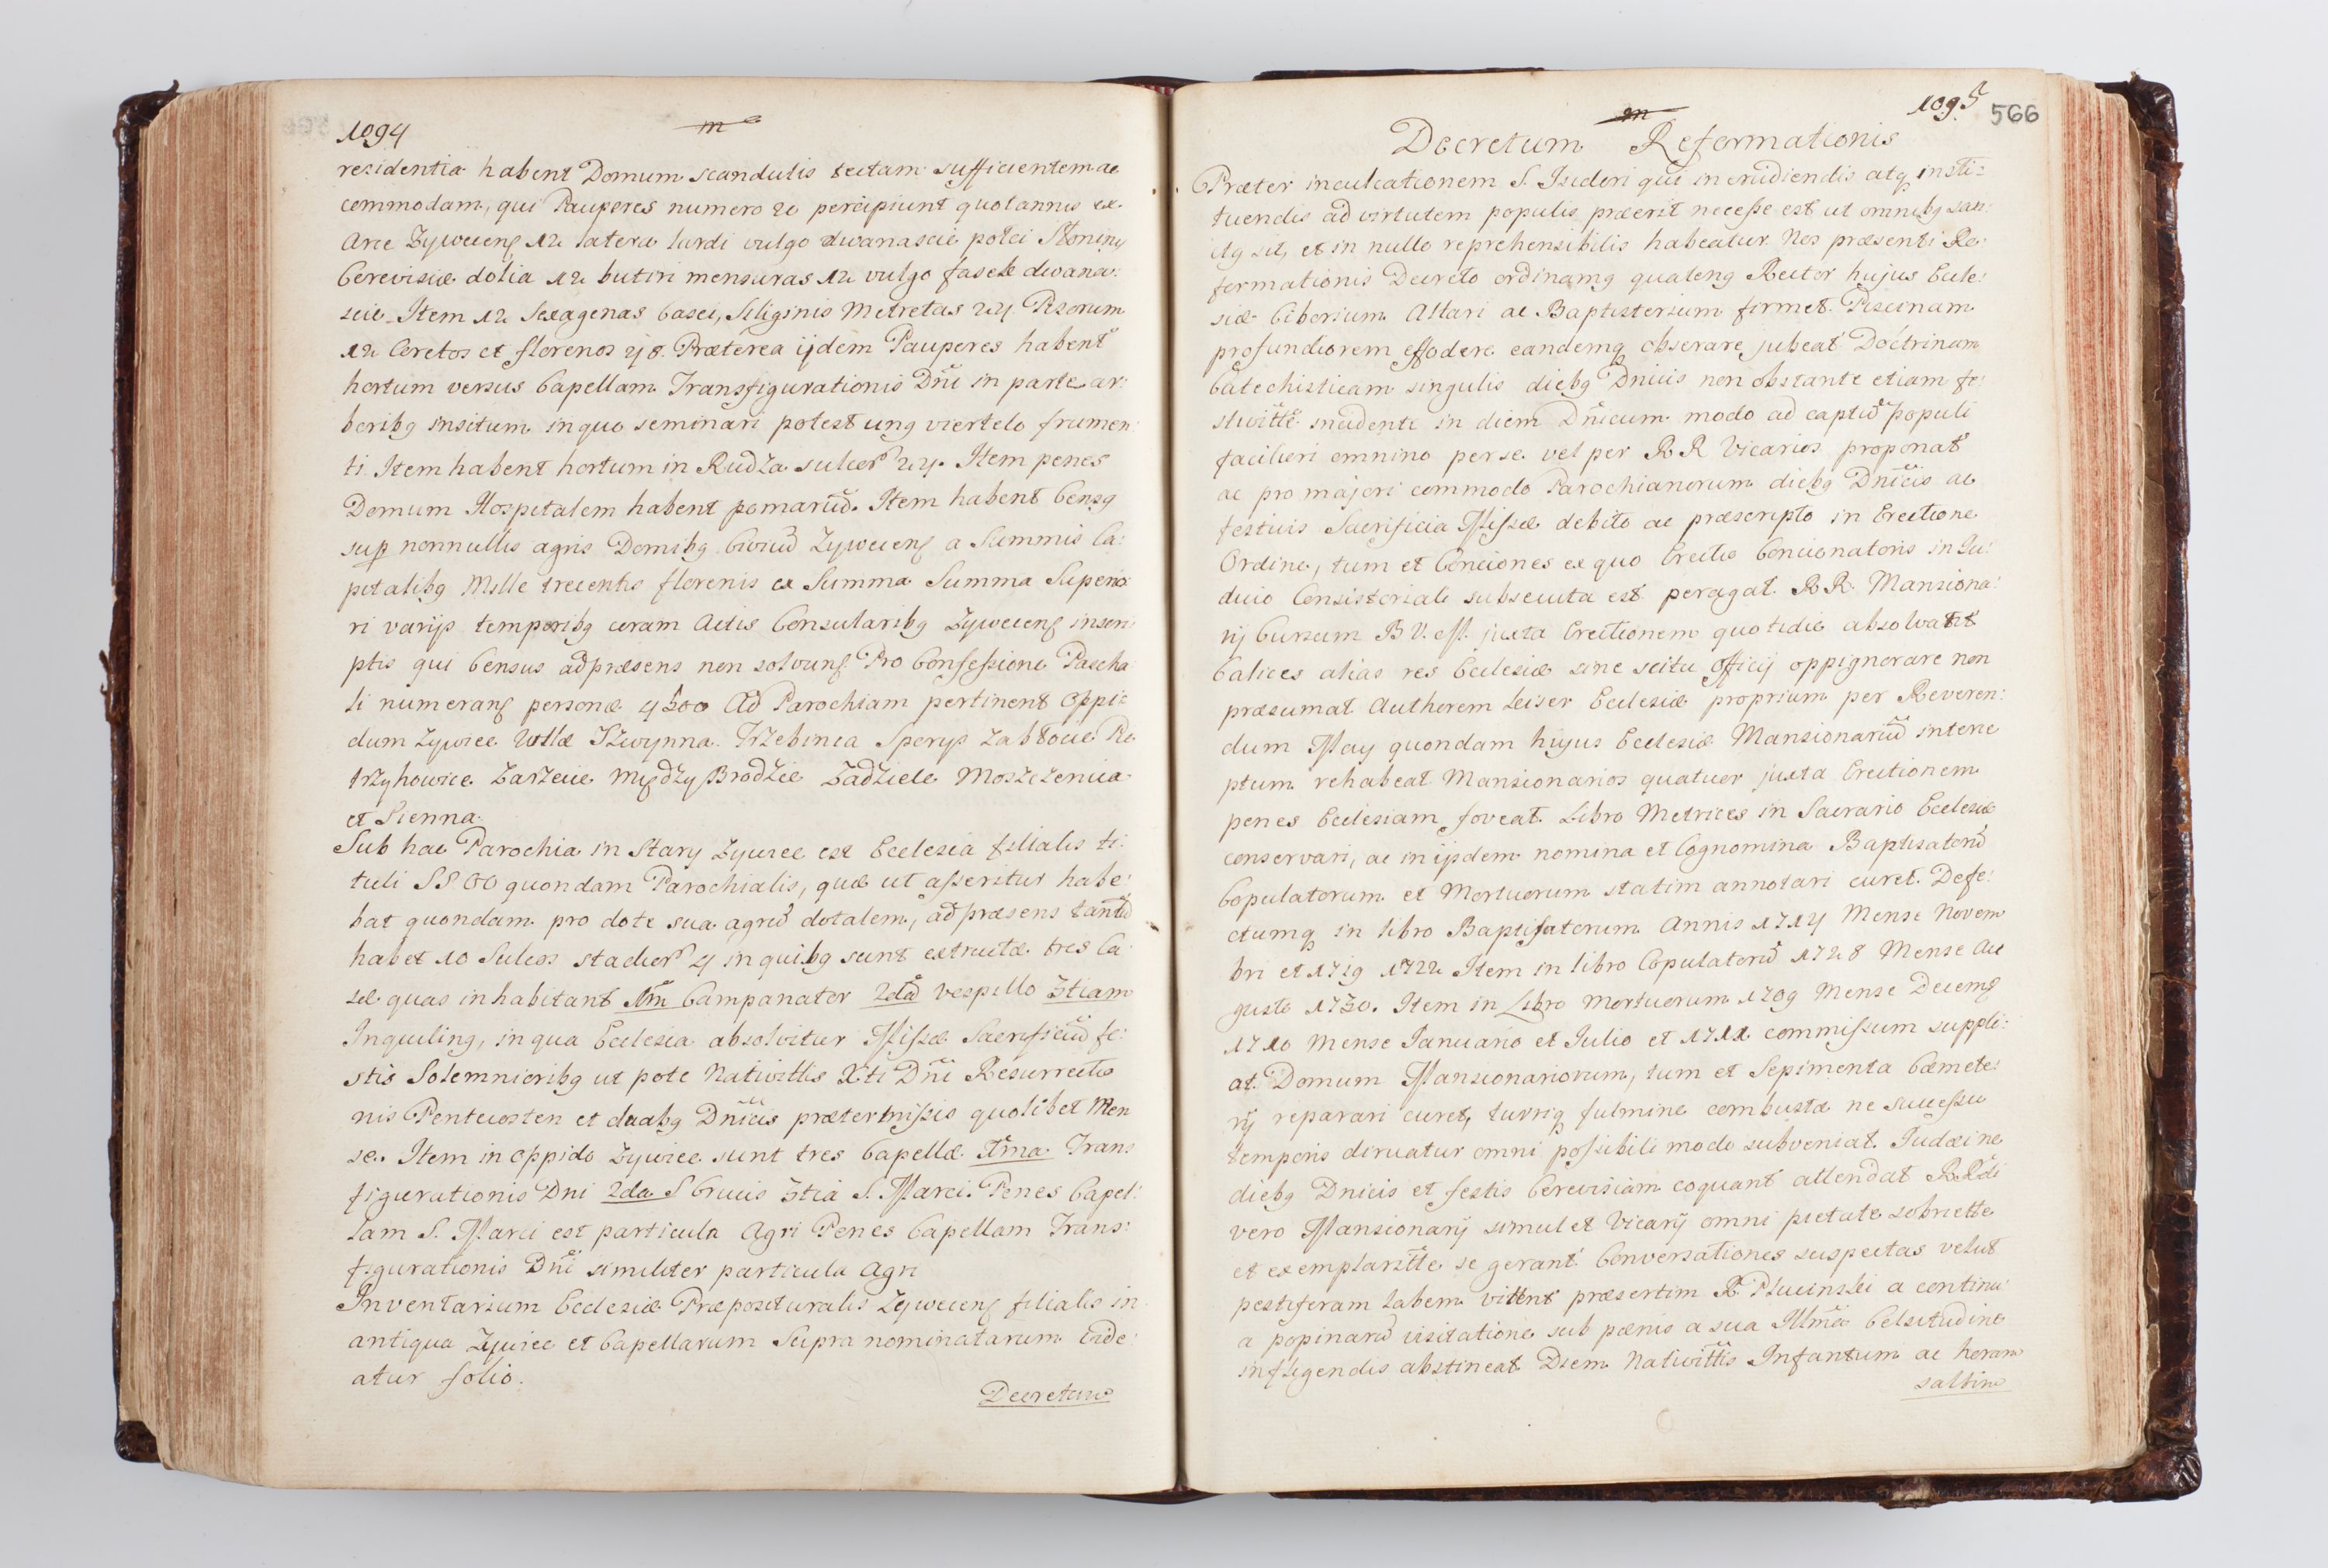 1094
m
residentia habent Domum scandulis tectam sufficientem ac
commodam, qui Pauperes numero 20 percipiunt quotannis ex
Arce Zywecens 12 latera lardi vulgo dwanascie polci Słoniny
Cerevisiæ dolia 12 butiri mensuras 12 vulgo fasek dwana:
scie. Item 12 Sexagenas Casei, Siliginis Metretas 24 Pisorum
12 Coretos et florenos 48. Præterea ijdem Pauperes habent
hortum versus Capellam Transfigurationis Dni in parte ar:
boribq insitum in quo seminari potest unq viertelo frumen:
ti. Item habent hortum in Rudza sulcor 24. Item penes
Domum Hospitalem habent pomariu. Item habent Censq
sup nonnullis agris Domibq Civiu Zywecens a Summis Ca:
pitalibq Mille trecentis florenis ex Summa Summa Superio:
ri varijs temporibq coram Actis Consularibq Zywecens inscri:
ptis qui Census ad præsens non solvuns. Pro Confessione Pascha
li numerans personæ 4500 Ad Parochiam pertinent Oppi:
dum Zywiec Villæ Isczynna Trzebinia Sporys Zabłocie Pie
trzykowice Zarzecie Między Brodzie Zadziele Moszczenica
et Sienna.
Sub hac Parochia in Stary Zywiec est Ecclesia filialis ti:
tuli SS. OO quondam Parochialis, quæ ut asseritur habe:
bat quondam pro dote sua agru dotalem, ad præsens tantu
habet 10 Sulcos stadior 4 in quibq sunt extructæ tres Ca
sæ quas inhabitant 1m Campanator 2da Vespillo 3tiam
Inquilinq, in qua Ecclesia absolvitur Missæ Sacrificiu fe:
stis Solemnioribq ut pote Nativittis Xti Dni Resurrectio
nis Pentecosten et duabq Dnicis prætermissis quolibet Men
se. Item in Oppido Zywiec sunt tres Capellæ 1ma Trans
figurationis Dni 2da S Crucis 3tia S. Marci. Penes Capel:
lam S. Marci est particula Agri Penes Capellam Trans:
figurationis Dni similiter particula Agri
Inventarium Ecclesiæ Præposituralis Zywecens filialis in
antiqua Zywiec et Capellarum Supra nominatarum vide:
atur folio.
Decretum
1095
566
m
Decretum Reformationis
Præter inculcationem S. Isidori qui in erudiendis atq insti:
tuendis ad virtutem populis præerit necesse est ut omnibq san:
ctq sit, et in nullo reprehensibilis habeatur. Nos præsenti Re:
formationis Decreto ordinamq quatenq Rector hujus Eccle:
siæ Ciborium Altari ac Baptisterium firmet. Piscinam
profundiorem effodere eandemq obserare jubeat Doctrinam
Catechisticam singulis diebq Dnicis non obstante etiam fe:
stivitte incidente in diem Dnicum modo ad captu populi
faciliori omnino per se vel per RR Vicarios proponat
ac pro majori commodo Parochianorum diebq Dnicis ac
festivis Sacrificia Missæ debito ac præscripto in Erectione
Ordine, tum et Conciones ex quo Erectio Concionatoris in Ju:
dicio Consistoriali subsecuta est peragat. RR Mansiona:
rij Cursum B V. M. juxta Erectionem quotidie absolvant
Calices alias res Ecclesiæ sine scitu Officij oppignorare non
præsumat Authorem Leiser Ecclesiæ proprium per Reveren:
dum May quondam hujus Ecclesiæ Mansionariu interce
ptum rehabeat Mansionarios quatuor juxta Erectionem
penes Ecclesiam foveat. Libro Metrices in Sacrario Ecclesiæ
conservari, ac in ijsdem nomina et Cognomina Baptisatoru
Copulatorum et Mortuorum statim annotari curet. Defe:
ctumq in libro Baptisatorum Annis 1714 Mense Novem
bri et 1719 1722 Item in libro Copulatoru 1728 Mense Au
gusto 1730. Item in Libro Mortuorum 1709 Mense Decemb
1710 Mense Januario et Julio et 1711 commissum suppli:
at. Domum Mansionariorum, tum et Sepimenta Cæmete:
rij reparari curet, turriq fulmine combustæ ne successu
temporis diruatur omni possibili modo subveniat. Judæi ne
diebq Dnicis et festis Cerevisiam coquant attendat RRdi
vero Mansionarij simul et Vicarij omni pietate sobriette
et exemplaritte se gerant Conversationes suspectas velut
pestiferam labem vittent præsertim R Plucinski a continu:
a popinaru visitatione sub pœnis a sua Illma Celsitudine
infligendis abstineat. Diem Nativittis Infantum ac horam
saltim